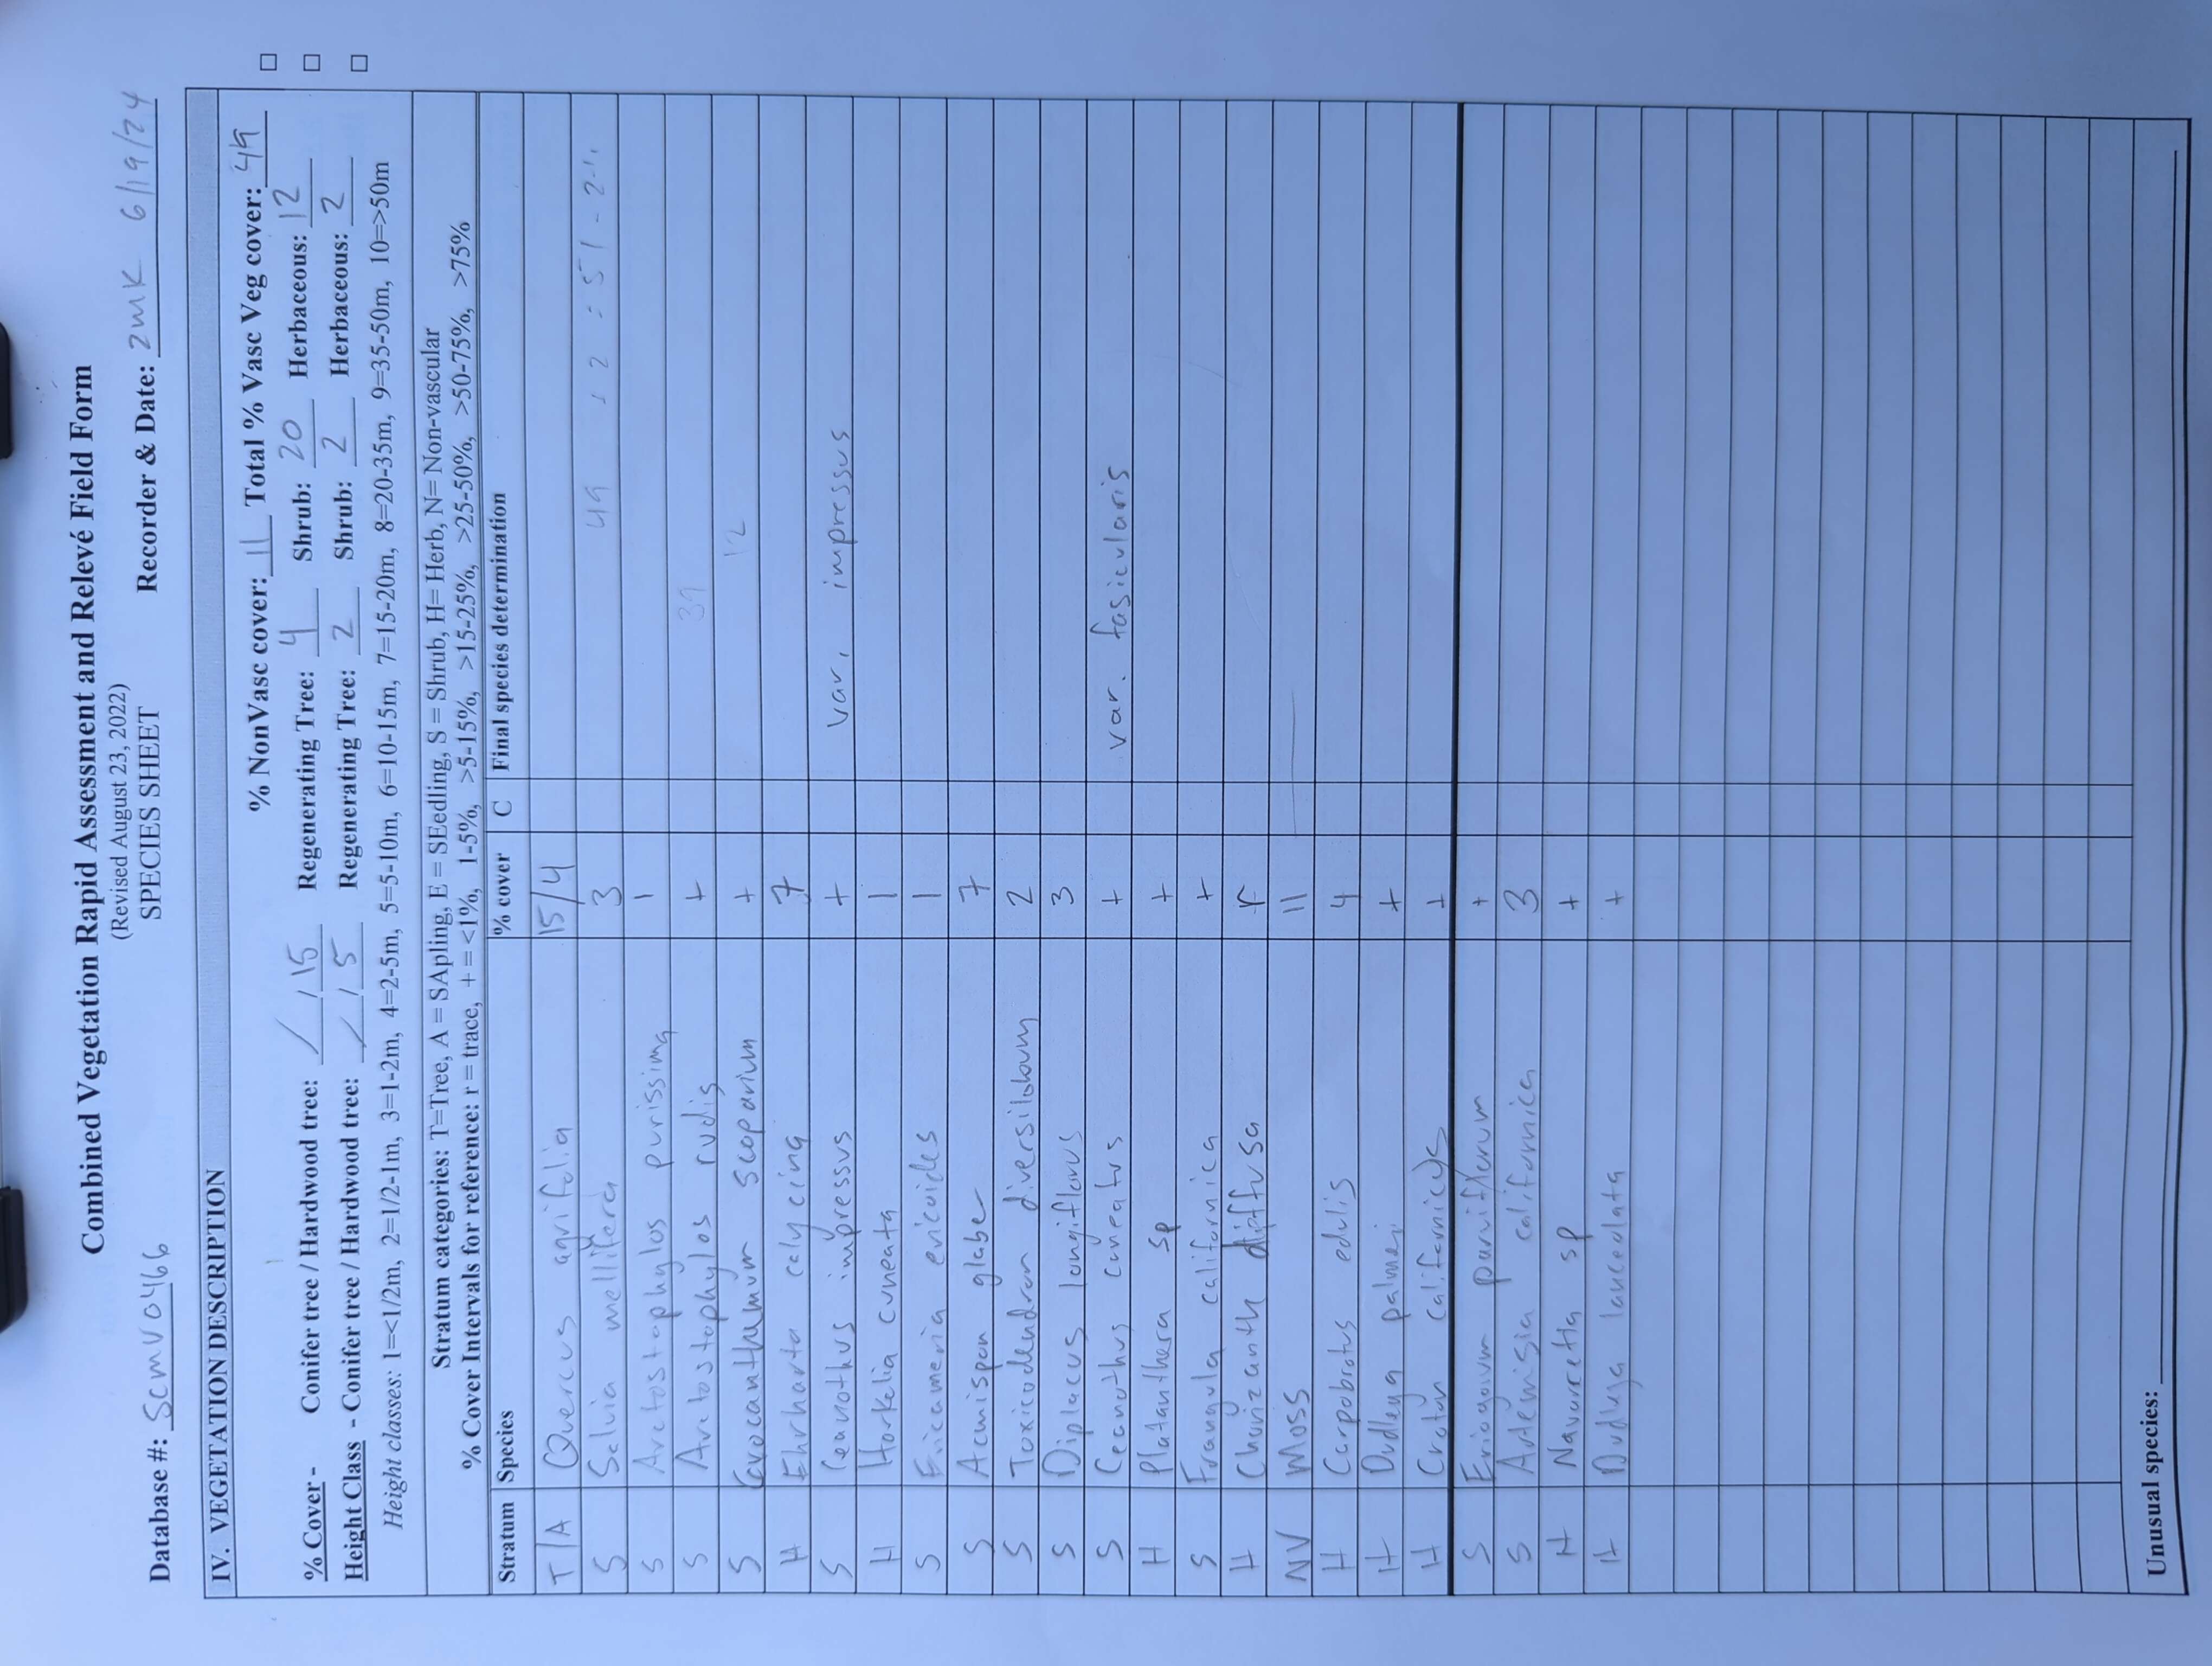 Combined Vegetation Rapid Assessment and Relevé Field Form
(Revised August 23, 2022)
SPECIES SHEET
Database #: SCMV0466 Recorder & Date: ZMK 6/19/24
IV. VEGETATION DESCRIPTION
% NonVasc cover: 11 Total % Vasc Veg cover: 49 □
% Cover - Conifer tree / Hardwood tree: / 15 Regenerating Tree: 4 Shrub: 20 Herbaceous: 12 □
Height Class - Conifer tree / Hardwood tree: / 5 Regenerating Tree: 2 Shrub: 2 Herbaceous: 2 □
Height classes: 1=<1/2m, 2=1/2-1m, 3=1-2m, 4=2-5m, 5=5-10m, 6=10-15m, 7=15-20m, 8=20-35m, 9=35-50m, 10=>50m
Stratum categories: T=Tree, A = SApling, E = SEedling, S = Shrub, H= Herb, N= Non-vascular
% Cover Intervals for reference: r = trace, + = <1%, 1-5%, >5-15%, >15-25%, >25-50%, >50-75%, >75%
Stratum Species % cover C Final species determination
T/A Quercus agrifolia 15/4
S Salvia mellifera 3 49 2 = 51 - 2
S Arctostaphylos purissima 1
S Arctostaphylos rudis + 39
S Crocanthemum scoparium + 12
H Ehrharta calycina 7
S Ceanothus impressus + var. impressus
H Horkelia cuneata 1
S Ericameria ericoides 1
S Acmispon glaber 7
S Toxicodendron diversilobum 2
S Diplacus longiflorus 3
S Ceanothus cuneatus + var. fasicularis
H Platanthera sp +
S Frangula californica +
H Chorizanth diffusa r
NV Moss 11
H Carpobrotus edulis 4
H Dudleya palmeri +
H Croton californicus +
S Eriogonum parviflorum +
S Artemisia californica 3
H Navarretia sp +
H Dudleya lanceolata +
Unusual species: